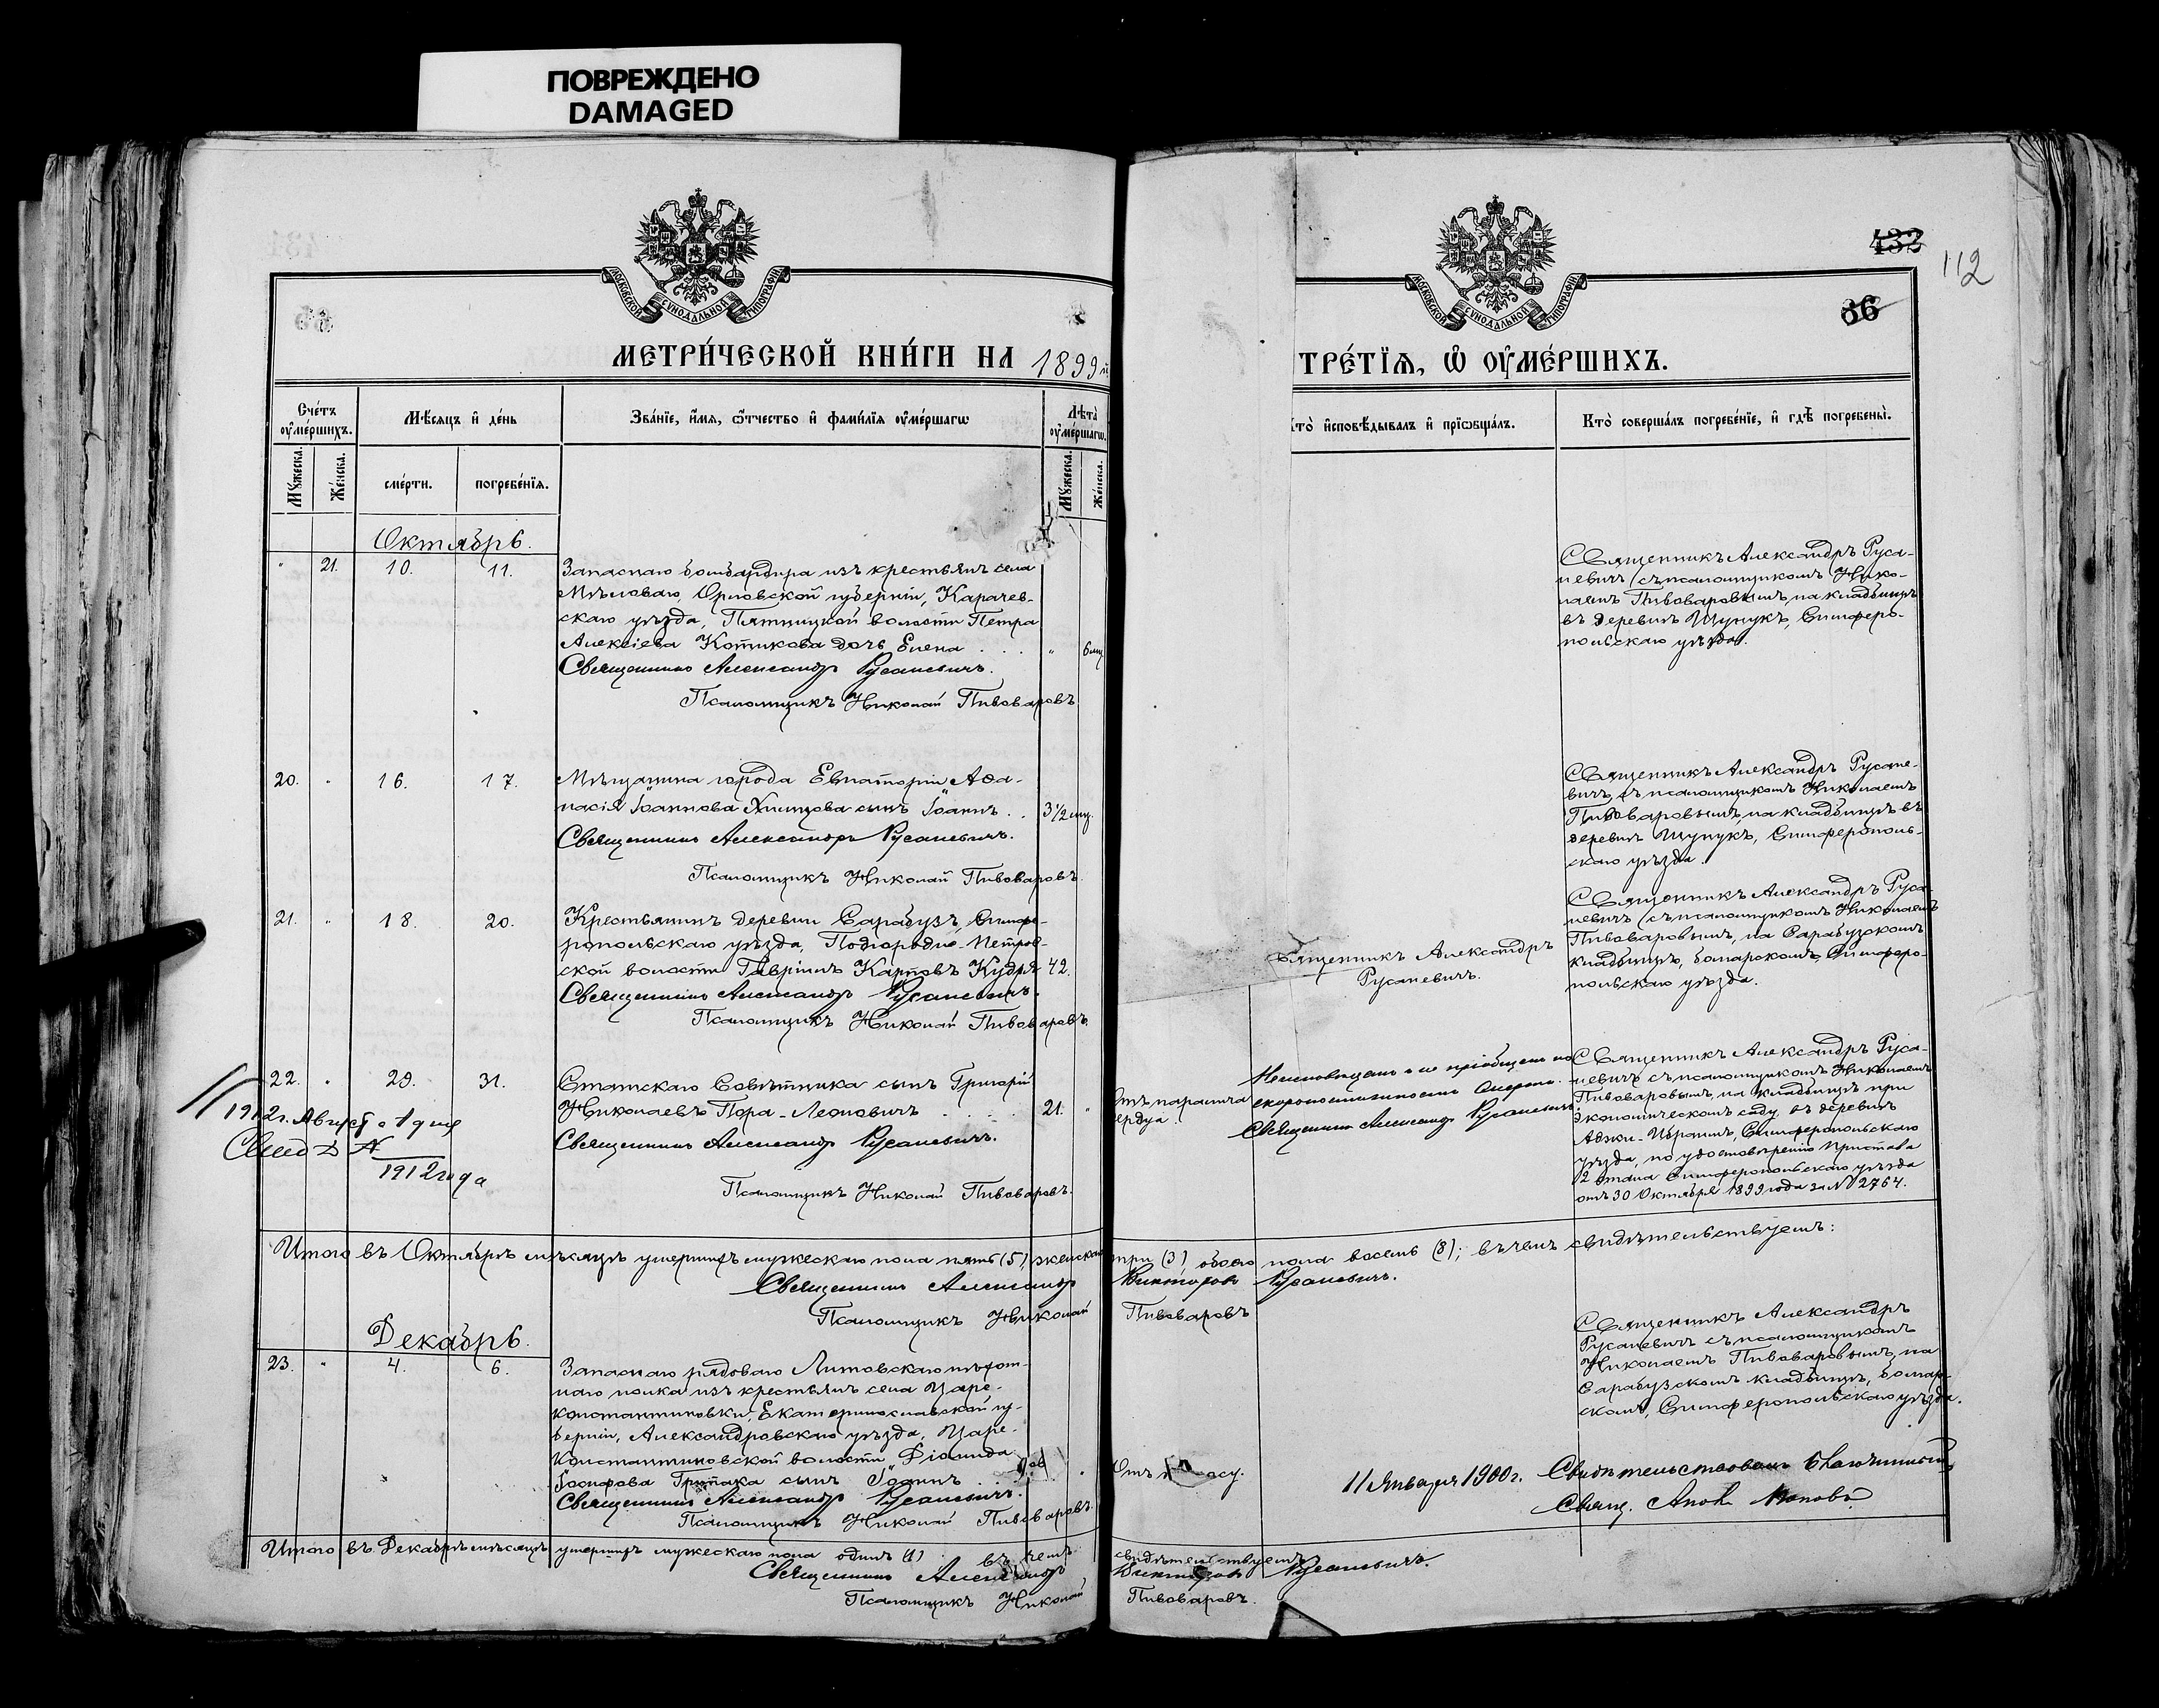 ПОВРЕЖДЕНО
DAMAGED
МОСКОВСКОЙ СѴНОДАЛЬНОЙ ТИПОГРАФІИ
МЕТРИ́ЧЕСКОЙ КНИ́ГИ НА 1899й
Сче́тъ оу҆ме́ршихъ.
Мѣ́сяцъ и҆ де́нь
Зва́нїе, и҆́мя, ѻ҆́тчество и҆ фами́лїя оу҆ме́ршагѡ
Лѣ́та оу҆ме́ршагѡ.
Му́жеска.
Же́нска.
сме́рти.
погребе́нїя.
Му́жеска.
Же́нска.
Октябрь.
" 21. 10. 11. Запаснаго бомбардира изъ крестьянъ села
Мѣловаго, Орловской губерніи, Карачев-
скаго уѣзда, Пятницкой волости Петра
Алексіева Котикова дочь Елена . . . " 6 мц
Священникъ Александръ Русаневичъ.
Псаломщикъ Николай Пивоваровъ
20. " 16. 17. Мѣщанина города Евпаторіи Аѳа-
насія Іоаннова Хинцова сынъ Іоаннъ . . 3 1/2 мц.
Священникъ Александръ Русаневичъ.
Псаломщикъ Николай Пивоваровъ.
21. " 18. 20. Крестьянинъ деревни Сарабузъ, Симфе-
ропольскаго уѣзда, Подгородне-Петров-
ской волости Гавріилъ Карповъ Кудря 42.
Священникъ Александръ Русаневичъ.
Псаломщикъ Николай Пивоваровъ.
22. " 29. 31. Статскаго Совѣтника сынъ Григорій
Николаевъ Пора-Леоновичъ . . . . 21. "
Священникъ Александръ Русаневичъ.
Псаломщикъ Николай Пивоваровъ.
1912г. Август 1 дня
Свид №
1912 года
Итого въ Октябрѣ мѣсяцѣ умершихъ мужескаго пола пять (5) женскаго
Священникъ Александръ
Псаломщикъ Николай
Декабрь.
23. " 4. 6. Запаснаго рядоваго Литовскаго пѣхот-
наго полка изъ крестьянъ села Царе-
константиновки, Екатеринославской гу-
берніи, Александровскаго уѣзда, Царе-
Константиновской волости
Іосифова сынъ Іоаннъ
Священникъ Александръ Русаневичъ.
Псаломщикъ Николай Пивоваровъ.
Итого въ Декабрѣ мѣсяцѣ умершихъ мужескаго пола одинъ (1) въ чемъ
Священникъ Александръ
Псаломщикъ Николай
432
112
66
МОСКОВСКОЙ СѴНОДАЛЬНОЙ ТИПОГРАФІИ
ТРЕ́ТЇѦ, Ѽ ОУ҆МЕ́РШИХЪ.
Кто̀ и҆сповѣ́дывалъ и҆ прїѡбща́лъ.
Кто̀ соверша́лъ погребе́нїе, и҆ гдѣ̀ погребены̀.
Священникъ Александръ Руса-
невичъ съ псаломщикомъ Нико-
лаемъ Пивоваровымъ, на кладбищѣ
въ деревнѣ Шунукъ, Симферо-
польскаго уѣзда.
Священникъ Александръ Русане-
вичъ, съ псаломщикомъ Николаемъ
Пивоваровымъ, на кладбищѣ въ
деревнѣ Шунукъ, Симферополь-
скаго уѣзда.
Священникъ Александръ
Русаневичъ.
Священникъ Александръ Руса-
невичъ съ псаломщикомъ Николаемъ
Пивоваровымъ, на Сарабузскомъ
кладбищѣ, болгарскомъ, Симферо-
польскаго уѣзда.
Отъ паралича
сердца.
Неисповѣданъ и не пріобщенъ по
скоропостижности смерти.
Священникъ Александръ Русаневичъ.
Священникъ Александръ Руса-
невичъ съ псаломщикомъ Николаемъ
Пивоваровымъ, на кладбищѣ при
экономическомъ саду въ деревнѣ
Аджи-Ибрамъ, Симферопольскаго
уѣзда, по удостовѣренію Пристава
2 стана Симферопольскаго уѣзда
отъ 30 Октября 1899 года за № 2764.
три (3) обоего пола восемь (8); въ чемъ свидѣтельствуемъ:
Викторовъ Русаневичъ.
Пивоваровъ
Священникъ Александръ
Русаневичъ съ псаломщикомъ
Николаемъ Пивоваровымъ, на
Сарабузскомъ кладбищѣ, болгар-
скомъ, Симферопольскаго уѣзда.
Отъ
11 Января 1900 г. Свидѣтельствовалъ Благочинный
Свящ. Поповъ
свидѣтельствуемъ
Викторовъ Русаневичъ.
Пивоваровъ.